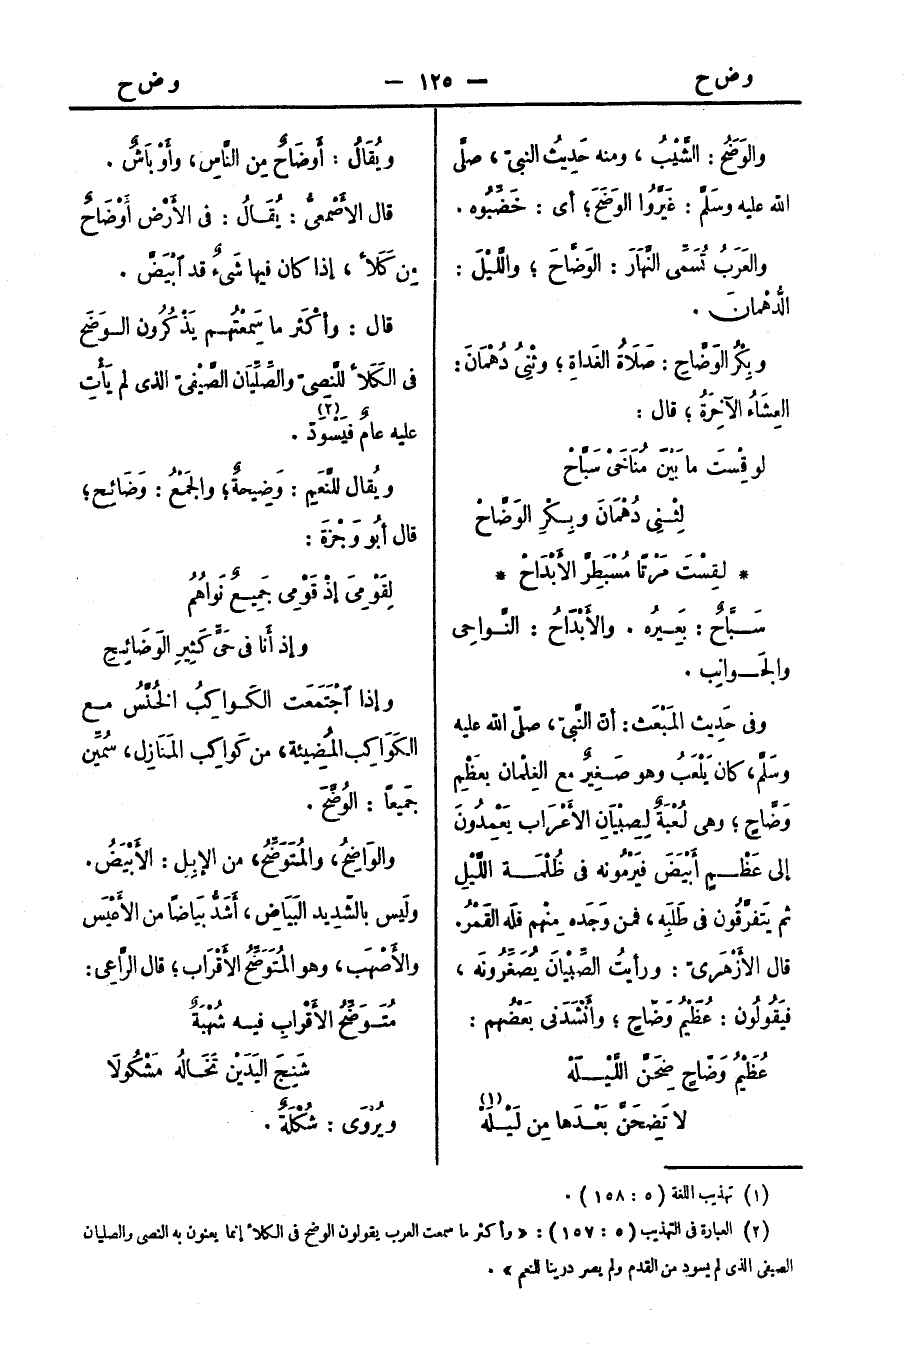 وضح
— ١٢٥ —
وضح
والوَضَحُ : الشَّيْبُ ، ومنه حَدِيثُ النبىّ ، صلَّى
الله عليه وسَلَّم : غَيِّرُوا الوَضَحَ؛ أى : خَضِّبُوه .
والعَرَبُ تُسَمِّى النَّهَارَ : الوَضَّاحَ ؛ واللَّيْلَ :
الدُّهْمانَ .
وبِكْرُ الوَضَّاحِ : صَلَاةُ الغَداةِ ؛ وثِنْىُ دُهْمَانَ :
العِشَاءُ الآخِرَةُ ؛ قال :
لو قِسْتَ ما بَيْنَ مُنَاخَىْ سَبَّاحْ
لِثْنِى دُهْمَانَ وبِكْرِ الوَضَّاحْ
* لَقِسْتَ مَرْتًا مُسْبَطِرَّ الأَبْدَاحْ *
سَبَّاحٌ : بَعِيرُه . والأَبْدَاحُ : النَّواحِى
والجَوانِب .
وفى حَدِيث المَبْعَث : أن النَّبىّ ، صلّى الله عليه
وسَلَّم، كان يَلْعَبُ وهو صَغِيرٌ مع الغِلْمان بعَظْمِ
وَضَّاحٍ ؛ وهى لُعْبَةٌ لِصِبْيَانِ الأَعْرَاب يَعْمِدُونَ
إلى عَظْمٍ أَبْيَضَ فَيَرْمُونه فى ظُلْمَة اللَّيْلِ
ثم يَتفرَّقُون فى طَلَبِه، فمن وَجَدَه مِنْهم فله القَمْرُ.
قال الأَزْهَرىّ : ورأيتُ الصِّبْيَانَ يُصَغِّرُونَه ،
فيَقُولُون : عُظَيْمُ وَضّاحٍ ؛ وأَنْشَدَنى بَعْضُهم :
عُظَيْمُ وَضَّاحٍ ضِحَنَّ اللَّيْلَهْ
لا تَضِحَنَّ بَعْدَها مِن لَيْلَهْ (١)
ويُقَالُ : أَوضَاحٌ مِن النَّاسِ، وأَوْبَاشٌ .
قال الأَصْمعىُّ : يُقَالُ : فى الأَرْض أَوْضَاحٌ
مِن كَلَأ ، إذا كان فيها شَىءٌ قد ٱبْيَضَّ .
قال : وأكْثَر ما سَمِعْتُهم يَذْكُرون الوَضَحَ
فى الكَلَأ للنَّصِىّ والصِّلِّيَان الصَّيْفىّ الذى لم يَأْتِ
عليه عامٌ فيَسْوَدّ (٢) .
ويُقال للنَّعَمِ : وَضِيحةٌ؛ والجَمْعُ : وَضَائِح؛
قال أَبُو وَجْزَةَ :
لِقَوْمِىَ إذْ قَوْمِى جَمِيعٌ نَواهُم
وإذ أَنا فى حَىٍّ كَثِيرِ الوَضَائِحِ
وإذا ٱجْتَمَعَت الكَواكِبُ الخُنَّسُ مع
الكَوَاكِب المُضِيئة، من كَواكِب المَنَازِل، سُمِّين
جَمِيعاً : الوُضَّحَ .
والوَاضِحُ، والمُتَوَضِّحُ، من الإِبِل : الأَبْيَضُ.
ولَيس بالشّديد البَيَاضِ، أَشَدُّ بَيَاضًا من الأَعْيَس
والأَصْهَب، وهو المُتَوَضِّحُ الأَقْرَاب؛ قال الرَّاعِى :
مُتَوَضِّحُ الأَقْرابِ فيه شُهْبَةٌ
شَنِجَ اليَدَيْن تَخَالُه مَشْكُولَا
ويُرْوَى : شُكْلَةٌ .
(١) تهذيب اللغة (٥ : ١٥٨) .
(٢) العبارة فى التهذيب (٥ : ١٥٧) : « وأكثر ما سمعت العرب يقولون الوضح فى الكلأ إنما يعنون به النصى والصليان
الصيفى الذى لم يسود من القدم ولم يصر درينا للنعم » .